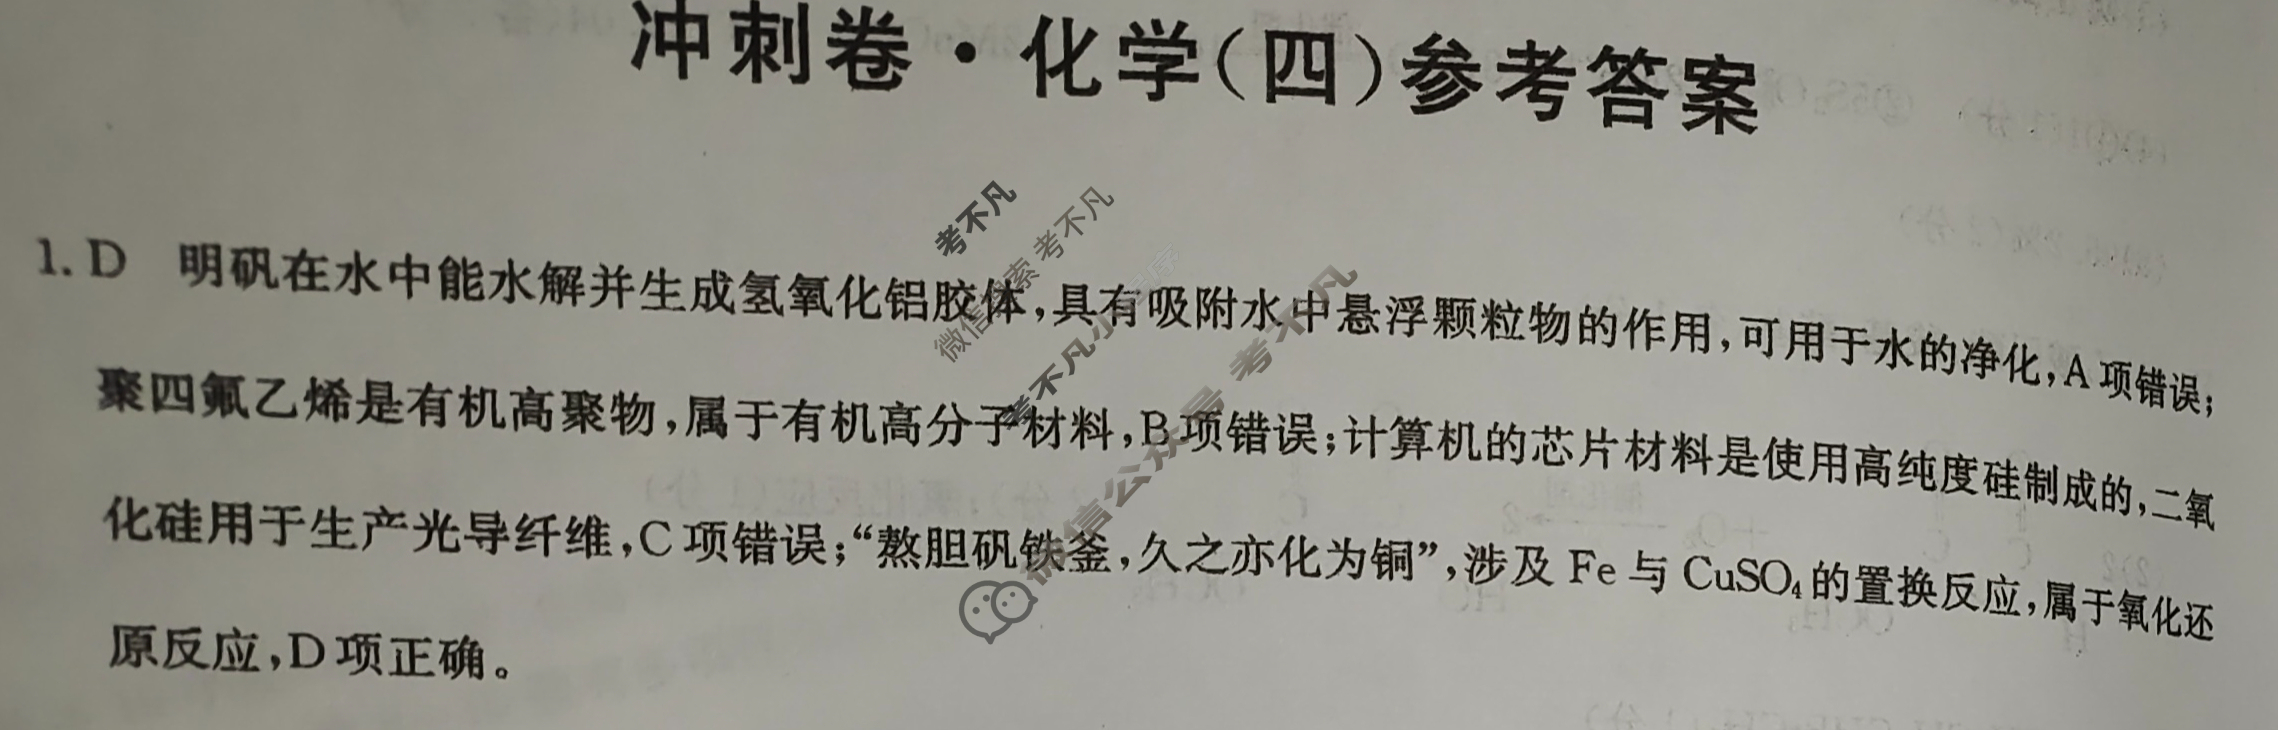 冲刺卷·化学(四)参考答案
1. D 明矾在水中能水解并生成氢氧化铝胶体,具有吸附水中悬浮颗粒物的作用,可用于水的净化,A项错误;
聚四氟乙烯是有机高聚物,属于有机高分子材料,B项错误;计算机的芯片材料是使用高纯度硅制成的,二氧
化硅用于生产光导纤维,C项错误;“熬胆矾铁釜,久之亦化为铜”,涉及 Fe 与 CuSO₄的置换反应,属于氧化还
原反应,D项正确。
考不凡
微信搜索 考不凡
考不凡小程序
微信公众号 考不凡